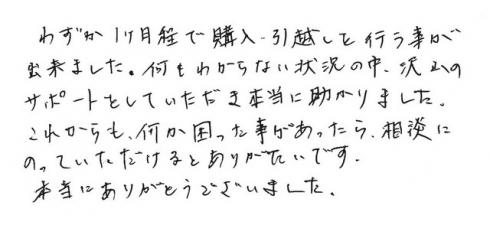 わずか1ヶ月程で購入・引越しと行う事が
出来ました。何もわからない状況の中、沢山の
サポートをしていただき本当に助かりました。
これからも、何か困った事があったら、相談に
のっていただけるとありがたいです。
本当にありがとうございました。